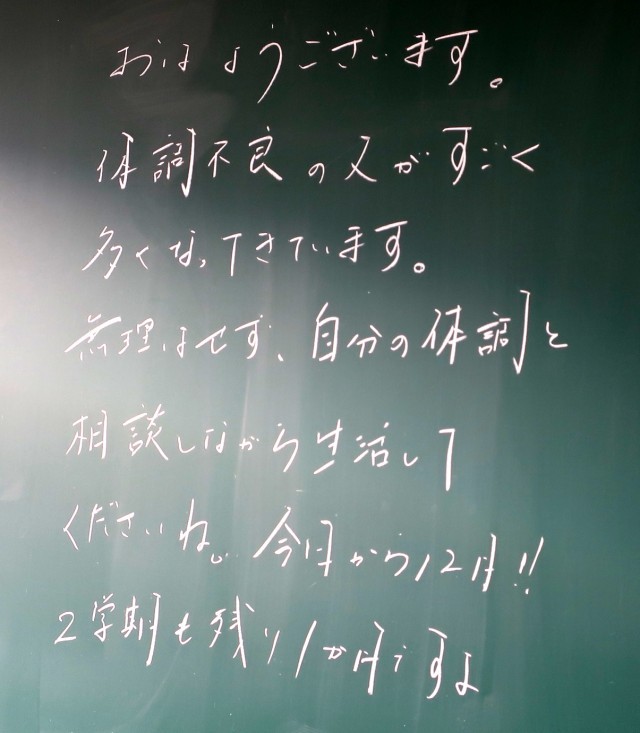 おはようございます。
体調不良の人がすごく
多くなってきています。
無理はせず、自分の体調と
相談しながら生活して
くださいね。今日から12月!!
2学期も残り1か月ですよ